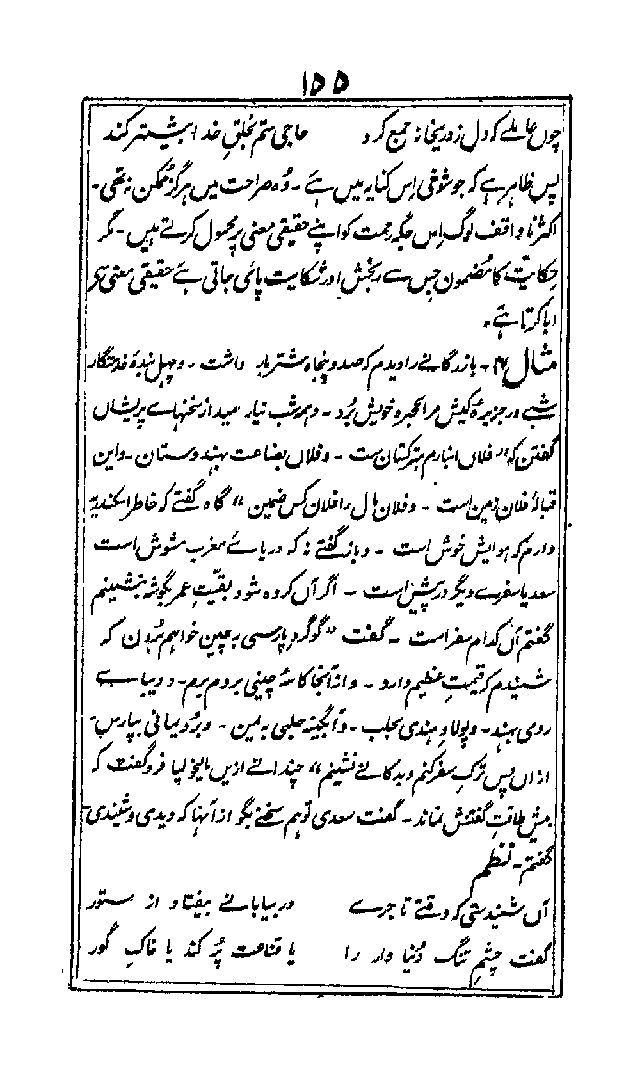 ۱۵۵
چوں عاملے کہ دل زور یخانہ جمع کرد حاجی ستم بخلقِ خدا بیشتر کند
پس ظاہر ہے کہ جو شوخی اِس کنایہ میں ہے ۔ وُہ صراحت میں ہرگز ممکن نہ تھی ۔
اکثر ناواقف لوگ اِس جگہ رحمت کو اپنے حقیقی معنی پر محمول کرتے ہیں ۔ مگر
حکایت کا مضمون جس سے رنجش اور شکایت پائی جاتی ہے حقیقی معنی سے
ابا کرتا ہے ۔
مثال ۴ ۔ بازرگانے را دیدم کہ صد و پنجاہ شتر بار داشت ۔ و چہل بندۂ خدمتگار
شبے در جزیرۂ کیش مرا بحجرہ خویش بُرد ۔ و ہمہ شب نیارمید از سخنہاے پریشاں
گفتن کہ " فلاں انبارم بترکستان ست ۔ و فلاں بضاعت بہندوستان ۔ و ایں
قبالۂ فلان زمین است ۔ و فلان مال را فلان کس ضمین " گاہ گفتے کہ خاطر اسکندریہ
دارم کہ ہوایش خوش است ۔ و باز گفتے نہ کہ دریاے مغرب مشوش است
سعدیا سفرے دیگر در پیش است ۔ اگر آں کردہ شود بقیتِ عمر بگوشہ بنشینم
گفتم آں کدام سفر است ۔ گفت " گوگردِ پارسی بہ چین خواہم بُردن کہ
شنیدم کہ قیمتِ عظیم دارد ۔ و از آنجا کاسۂ چینی بروم برم ۔ و دیباے
رومی بہند ۔ و پولادِ ہندی بحلب ۔ و آبگینہ حلبی بہ یمن ۔ و بُردِ یمانی بپارس ۔
ازاں پس ترکِ سفر کنم و بدکانے نشینم " چندانے ازیں مالیخولیا فرو گفت کہ
بیش طاقتِ گفتنش نماند ۔ گفت سعدی تو ہم سخنے بگو از آنہا کہ دیدی و شنیدی
گفتم ۔ نظم
آں شنیدستی کہ وقتے تاجرے در بیابانے بیفتاد از ستور
گفت چشمِ تنگ دُنیا دار را یا قناعت پُر کند یا خاکِ گور